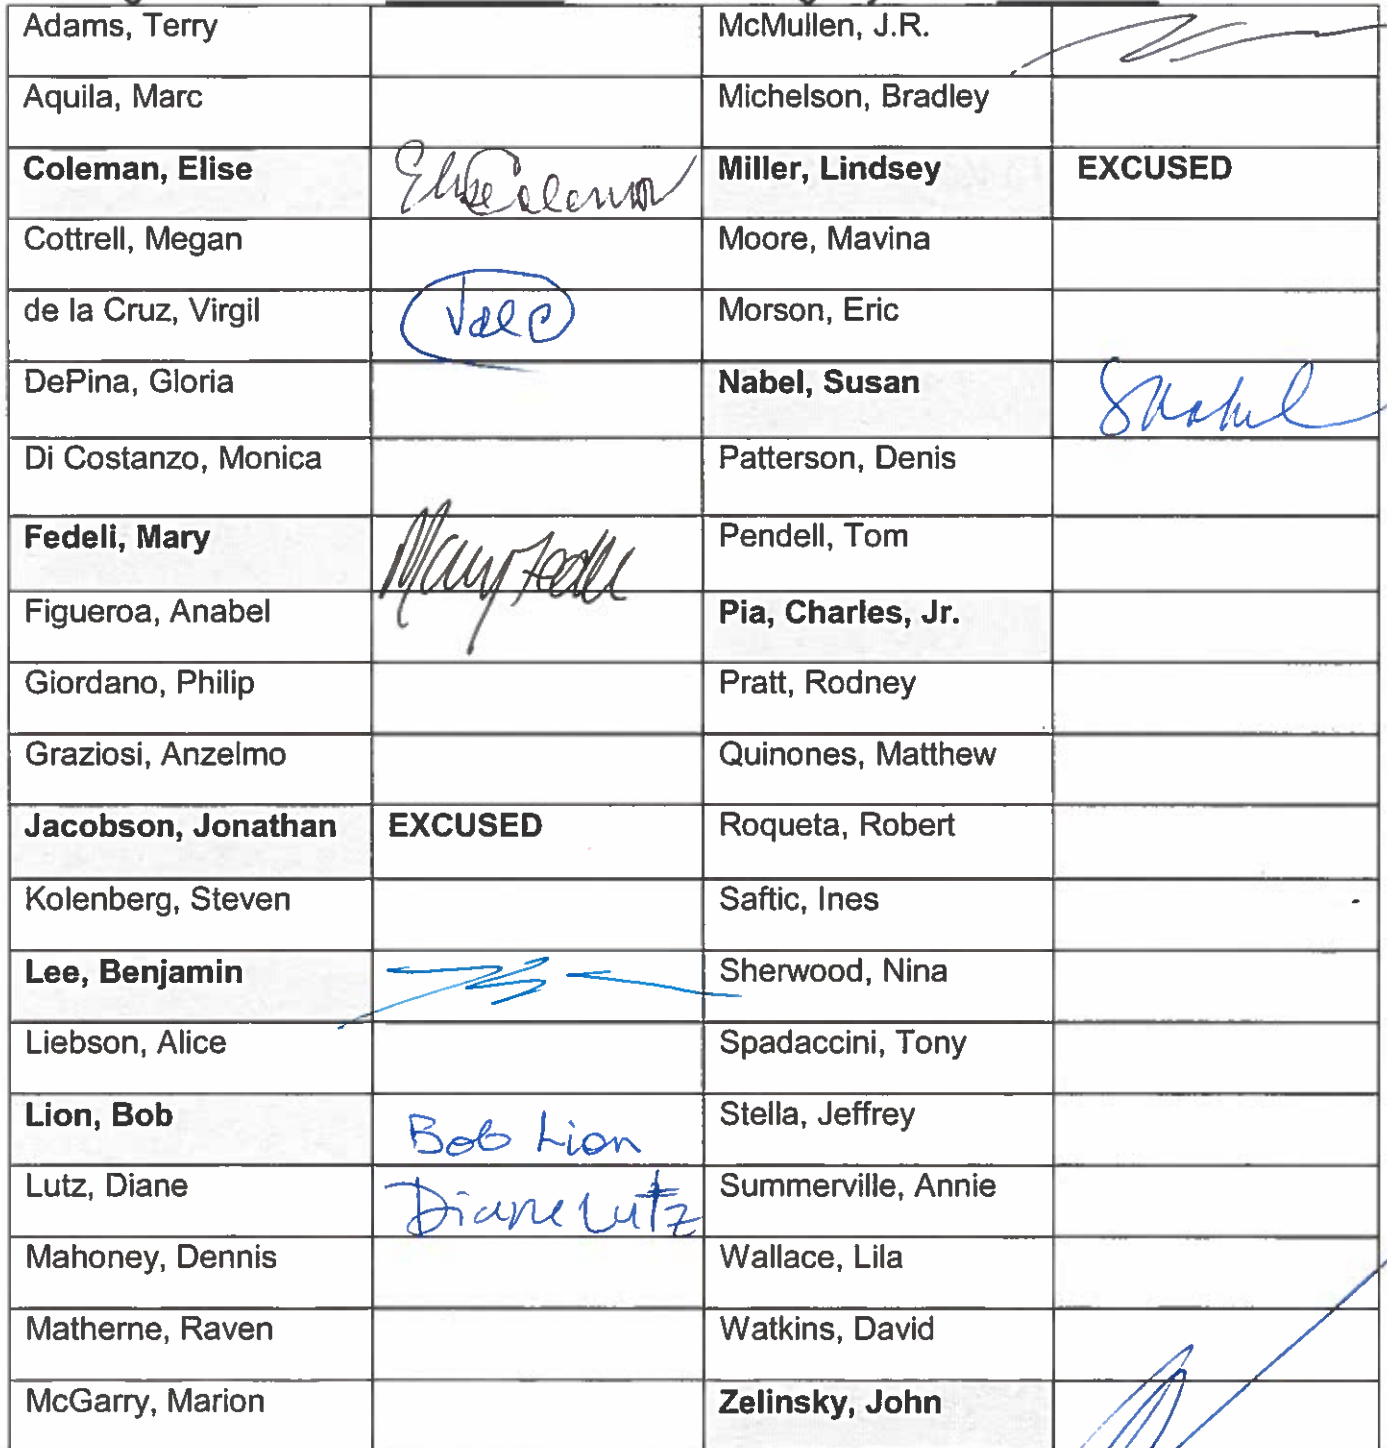 Adams, Terry McMullen, J.R.
Aquila, Marc Michelson, Bradley
Coleman, Elise Elise Coleman Miller, Lindsey EXCUSED
Cottrell, Megan Moore, Mavina
de la Cruz, Virgil Morson, Eric
DePina, Gloria Nabel, Susan SNabel
Di Costanzo, Monica Patterson, Denis
Fedeli, Mary Mary Fedeli Pendell, Tom
Figueroa, Anabel Pia, Charles, Jr.
Giordano, Philip Pratt, Rodney
Graziosi, Anzelmo Quinones, Matthew
Jacobson, Jonathan EXCUSED Roqueta, Robert
Kolenberg, Steven Saftic, Ines
Lee, Benjamin Sherwood, Nina
Liebson, Alice Spadaccini, Tony
Lion, Bob Bob Lion Stella, Jeffrey
Lutz, Diane Diane Lutz Summerville, Annie
Mahoney, Dennis Wallace, Lila
Matherne, Raven Watkins, David
McGarry, Marion Zelinsky, John